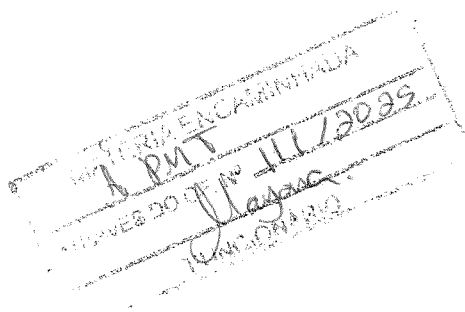 MATÉRIA ENCAMINHADA
À PMT
ATRAVÉS DO OF. Nº 111/2025.
FUNCIONÁRIO